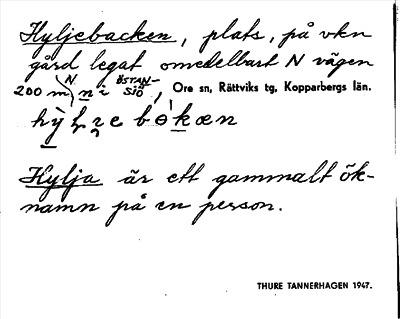 Hyljebacken, plats, på vkn
gård legat omedelbart N vägen
200 m N n i ÖSTAN-
SJÖ, Ore sn, Rättviks tg, Kopparbergs län.
Hylja är ett gammalt ök-
namn på en person.
THURE TANNERHAGEN 1947.